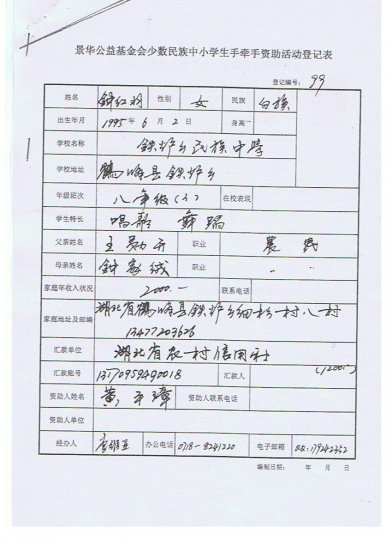 景华公益基金会少数民族中小学生手牵手资助活动登记表
登记编号： 99
姓名 钟红羽 性别 女 民族 白族
出生年月 1995年6月2日 身高
学校名称 铁炉乡民族中学
学校地址 鹤峰县铁炉乡
年级班次 八年级(3) 在校表现
学生特长 唱歌 舞蹈
父亲姓名 职业 农民
母亲姓名 职业 〃 〃
家庭年收入状况 2000.- 联系电话
家庭地址及邮编 湖北省鹤峰县铁炉乡细杉村八村
13477203626
汇款单位 湖北省农村信用社
汇款账号 汇款人 (1200.-)
资助人姓名 黄平璋 资助人联系电话
资助人单位
经办人 办公电话 0718-8241220 电子邮箱
编制日期： 年 月 日